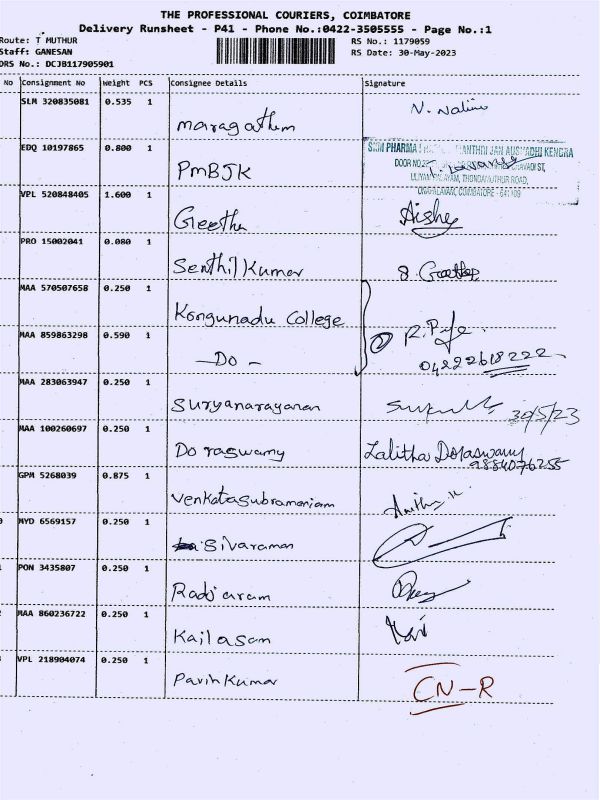 THE PROFESSIONAL COURIERS, COIMBATORE
Delivery Runsheet - P41 - Phone No.:0422-3505555 - Page No.:1
Route: T MUTHUR RS No.: 1179059
Staff: GANESAN RS Date: 30-May-2023
DRS No.: DCJB117905901
No Consignment No Weight PCS Consignee Details Signature
SLM 320835081 0.535 1 maragathm N. Nalini
EDQ 10197865 0.800 1 PmBJK
SHM PHARMA JAN AUSHADHI KENDRA
DOOR NO.
THONDAMUTHUR ROAD,
COIMBATORE - 641109
VPL 520848405 1.600 1 Geetha
PRO 15002041 0.080 1 Senthil Kumar
MAA 570507658 0.250 1 Kongunadu College
MAA 859863298 0.590 1 —Do— 04222618222
MAA 283063947 0.250 1 Suryanarayanan 30/5/23
MAA 100260697 0.250 1 Doraswamy Lalitha Doraswamy
9884076255
GPM 5268039 0.875 1 Venkatasubramaniam
MYD 6569157 0.250 1 Sivaraman
PON 3435807 0.250 1 Radjaram
MAA 860236722 0.250 1 Kailasam
VPL 218904074 0.250 1 Pavinkumar CN-R